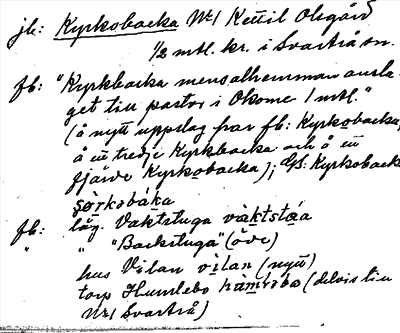 jb: Kyrkobacka Nr 1 Kettil Olsgård
1/2 mtl. kr. i Svartrå sn.
fb: "Kyrkbacka mensalhemman ansla-
get till pastor i Okome 1 mtl."
(å nytt uppslag har fb: Kyrkobacka,
å ett tredje Kyrkbacka och å ett
fjärde Kyrkobacka); GS: Kyrkobacka
şǫrkobáka
fb: läg. Vaktstuga vàktstǫ́a
" " "Backstuga" (öde)
hus Vilan vìlan (nytt)
torp Humlebo hùmrəbo (delvis till
Nr 1 Svartrå)